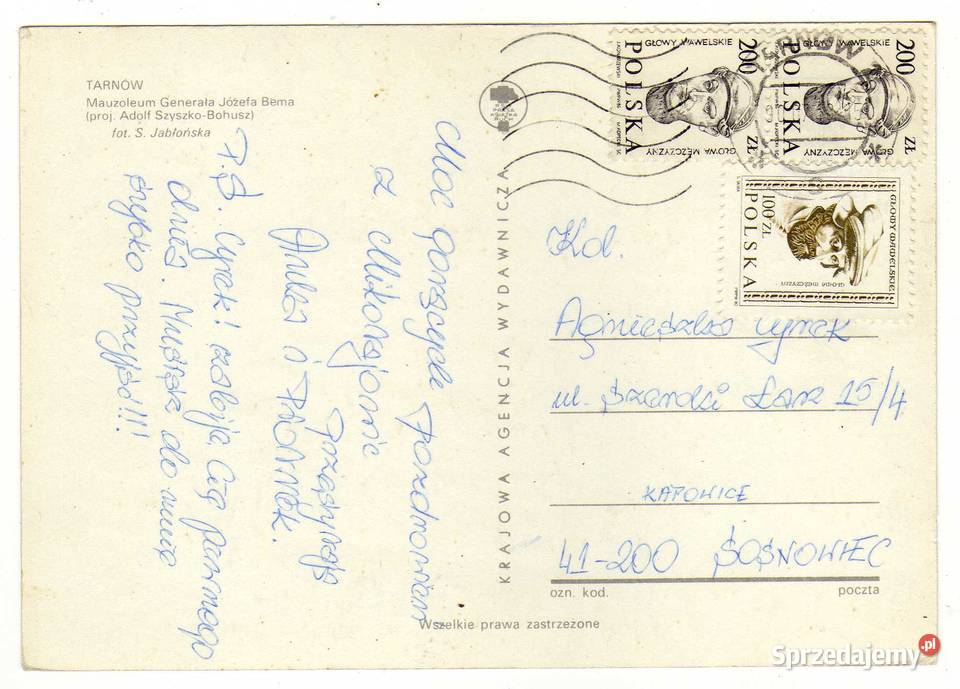 TARNÓW
Mauzoleum Generała Józefa Bema
(proj. Adolf Szyszko-Bohusz)
fot. S. Jabłońska
Moc gorących pozdrowień
z Mikołajowic
przesyłają
Anka i
P.S. Cyrek! zabiją Cię pewnego
dnia. Musisz do mnie
szybko przyjść!!!
KRAJOWA AGENCJA WYDAWNICZA
GŁOWY WAWELSKIE
200 ZŁ
POLSKA
GŁOWA MĘŻCZYZNY
GŁOWY WAWELSKIE
200 ZŁ
POLSKA
GŁOWA MĘŻCZYZNY
TARNÓW
GŁOWY WAWELSKIE
100 ZŁ
POLSKA
GŁOWA MĘŻCZYZNY
Kol.
Agnieszka Cyrek
ul. 15/4
KATOWICE
41-200 SOSNOWIEC
ozn. kod. poczta
Wszelkie prawa zastrzeżone
Sprzedajemy.pl